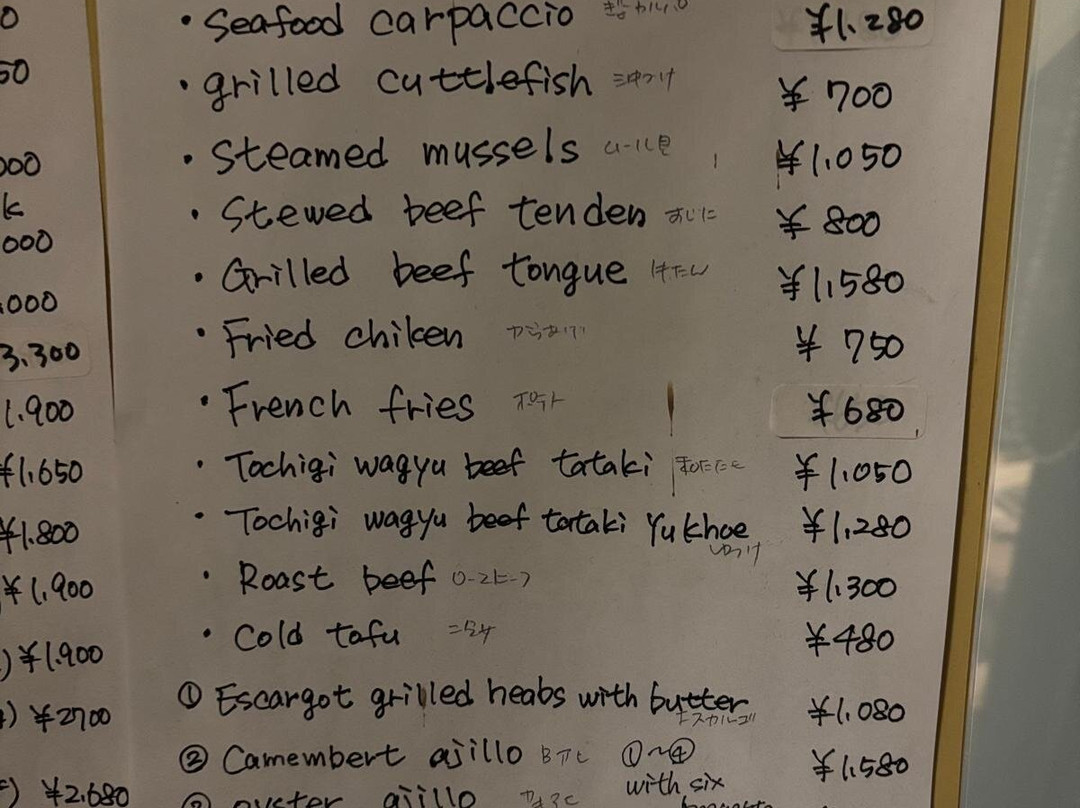 0
50
000
k
000
.000
3.300
1.900
¥1.650
¥1.800
¥1.900
) ¥1.900
) ¥2700
) ¥2.680
・Seafood carpaccio ¥1.280
・grilled cuttlefish ¥ 700
・Steamed mussels ムール貝 ¥1.050
・Stewed beef tenden すじに ¥ 800
・Grilled beef tongue ¥1,580
・Fried chiken からあげ ¥ 750
・French fries ポテト ¥ 680
・Tochigi wagyu beef tataki 和たたき ¥1.050
・Tochigi wagyu beef tataki Yukhoe ¥1.280
・Roast beef ローストビーフ ¥1.300
・Cold tofu ¥480
① Escargot grilled heabs with butter ¥1.080
エスカルゴ
② Camembert ajillo ①~④ ¥1.580
with six
oyster ajillo